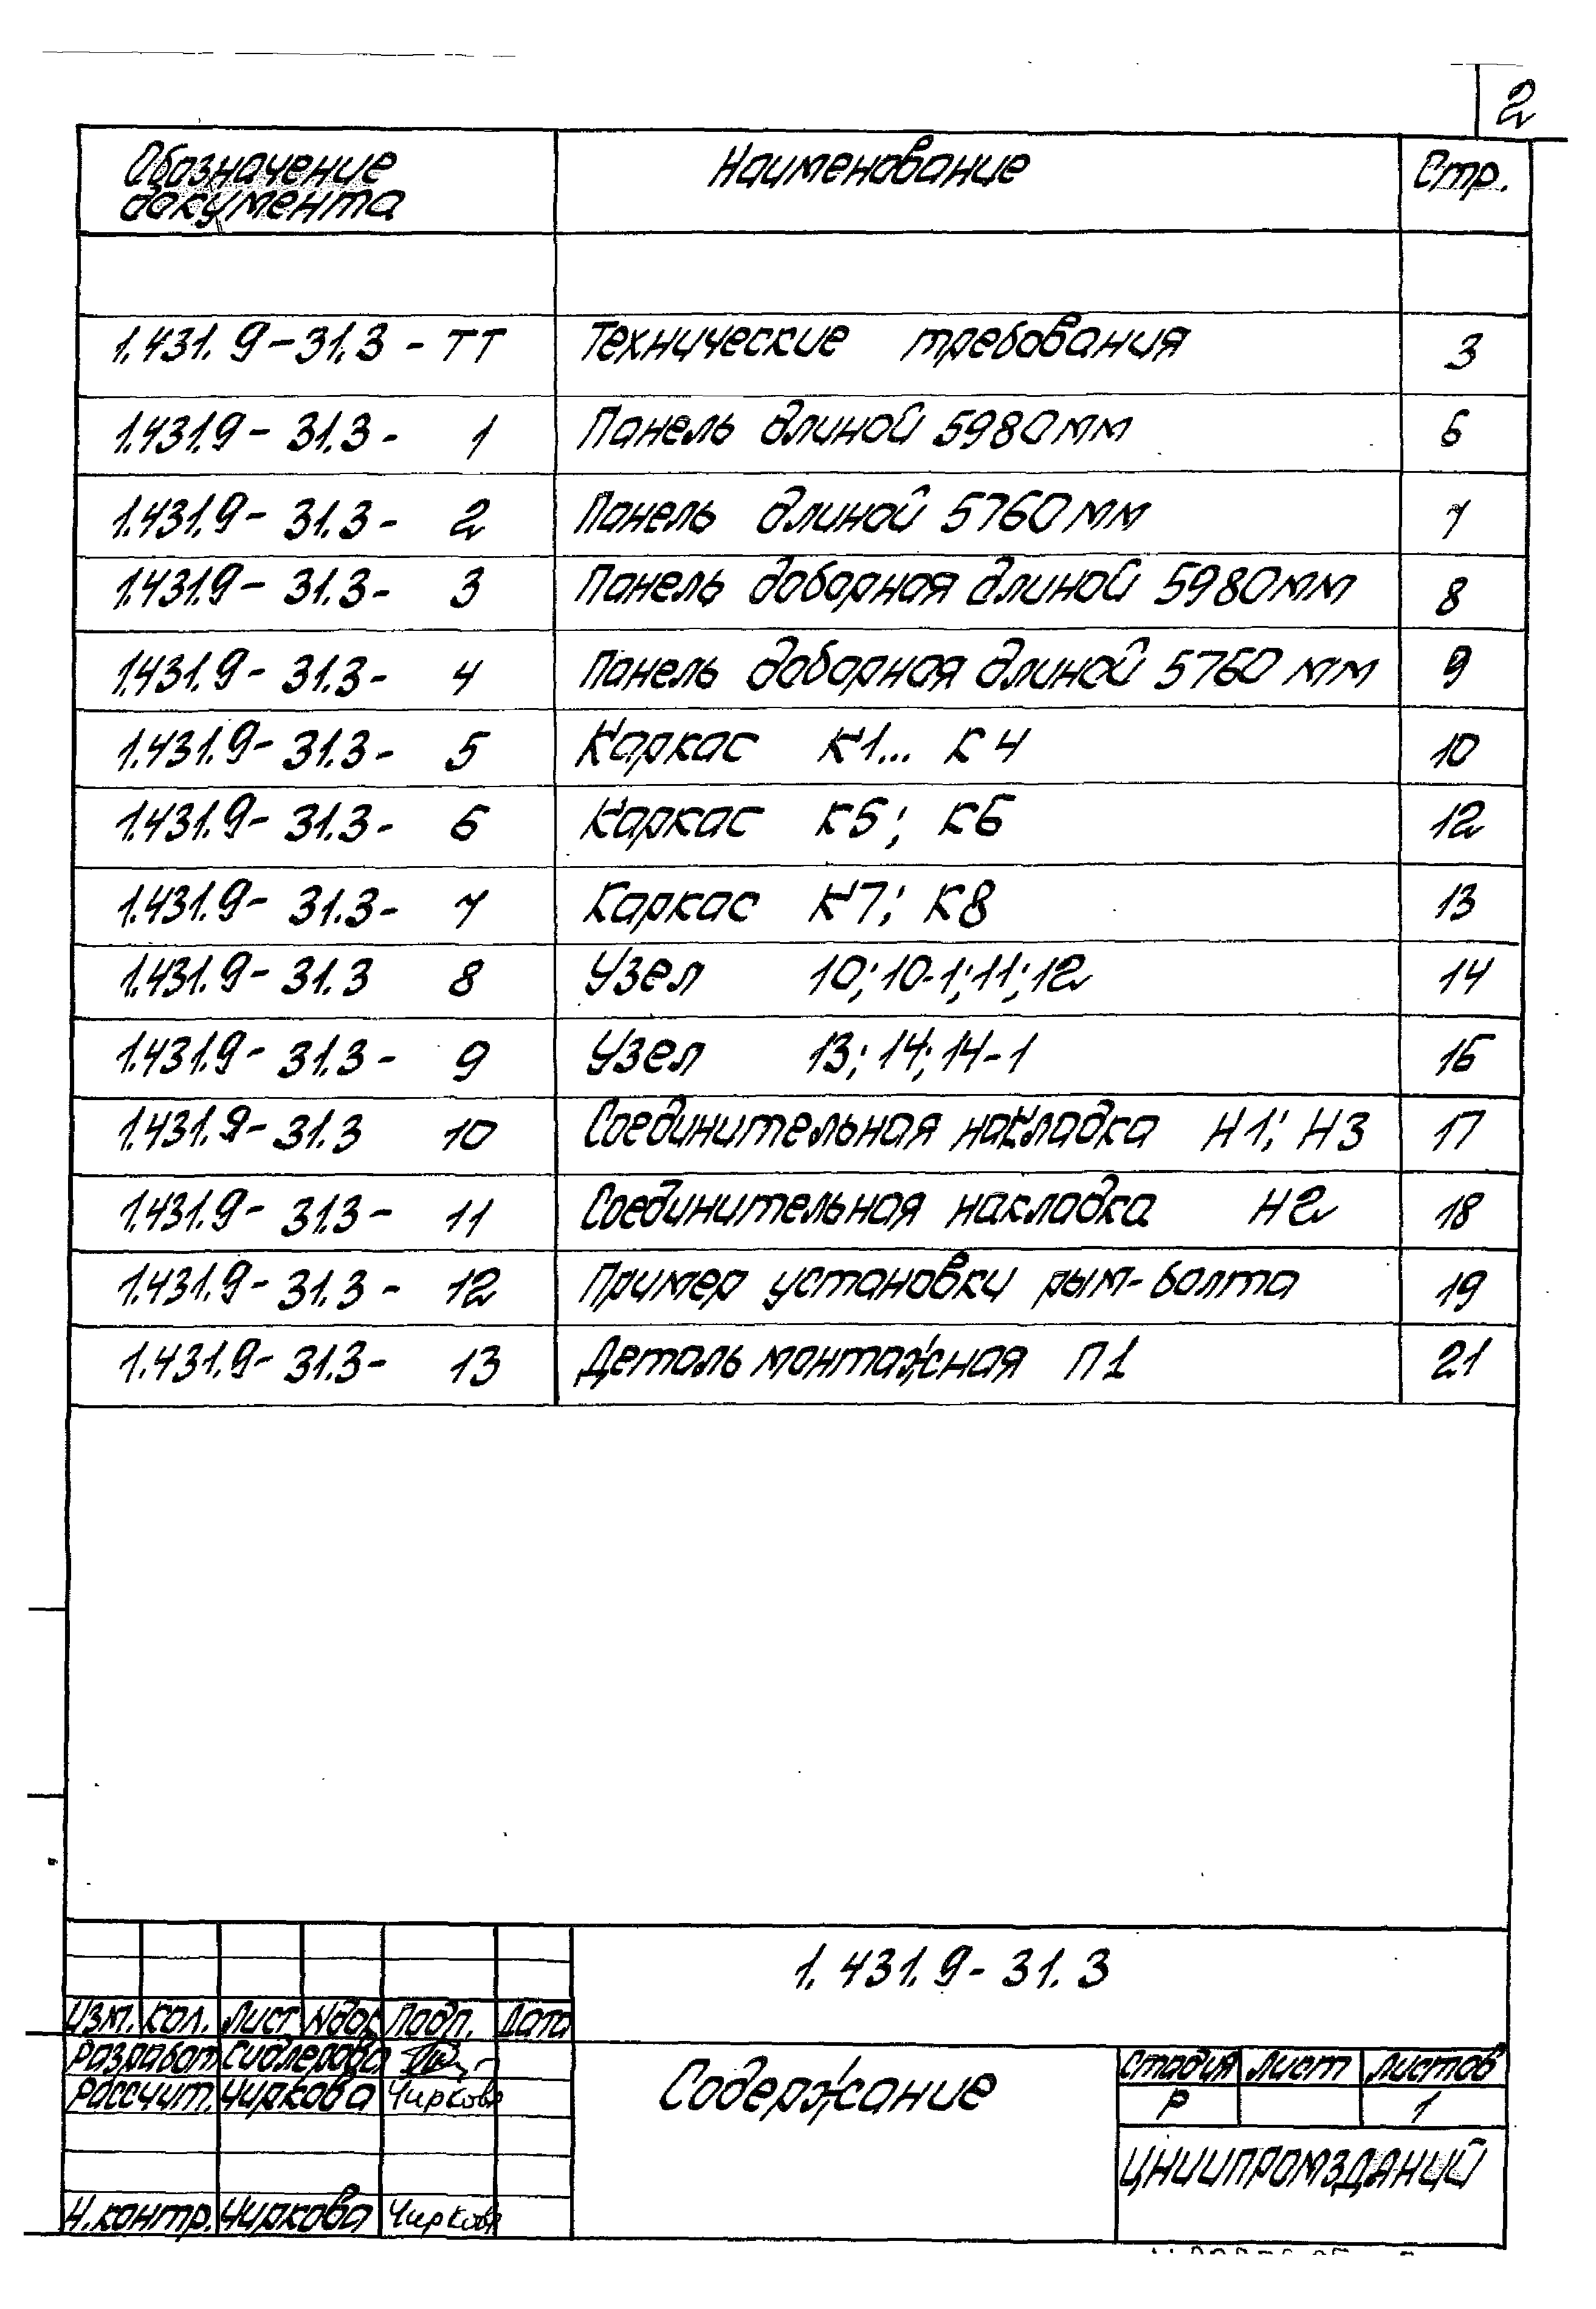 2
Обозначение документа Наименование Стр.
1.431.9-31.3-ТТ Технические требования 3
1.431.9-31.3- 1 Панель длиной 5980мм 6
1.431.9-31.3- 2 Панель длиной 5760мм 7
1.431.9-31.3- 3 Панель доборная длиной 5980мм 8
1.431.9-31.3- 4 Панель доборная длиной 5760мм 9
1.431.9-31.3- 5 Каркас К1...К4 10
1.431.9-31.3- 6 Каркас К5; К6 12
1.431.9-31.3- 7 Каркас К7; К8 13
1.431.9-31.3 8 Узел 10; 10-1; 11; 12 14
1.431.9-31.3- 9 Узел 13; 14; 14-1 16
1.431.9-31.3 10 Соединительная накладка Н1; Н3 17
1.431.9-31.3- 11 Соединительная накладка Н2 18
1.431.9-31.3- 12 Пример установки рым-болта 19
1.431.9-31.3- 13 Деталь монтажная П1 21
1.431.9-31.3
Изм. Кол. Лист Nдок Подп. Дата
Разработ. Сидлерова
Рассчит. Чиркова Чиркова
Н.контр. Чиркова Чиркова
Содержание
Стадия Лист Листов
Р 1
ЦНИИПРОМЗДАНИЙ